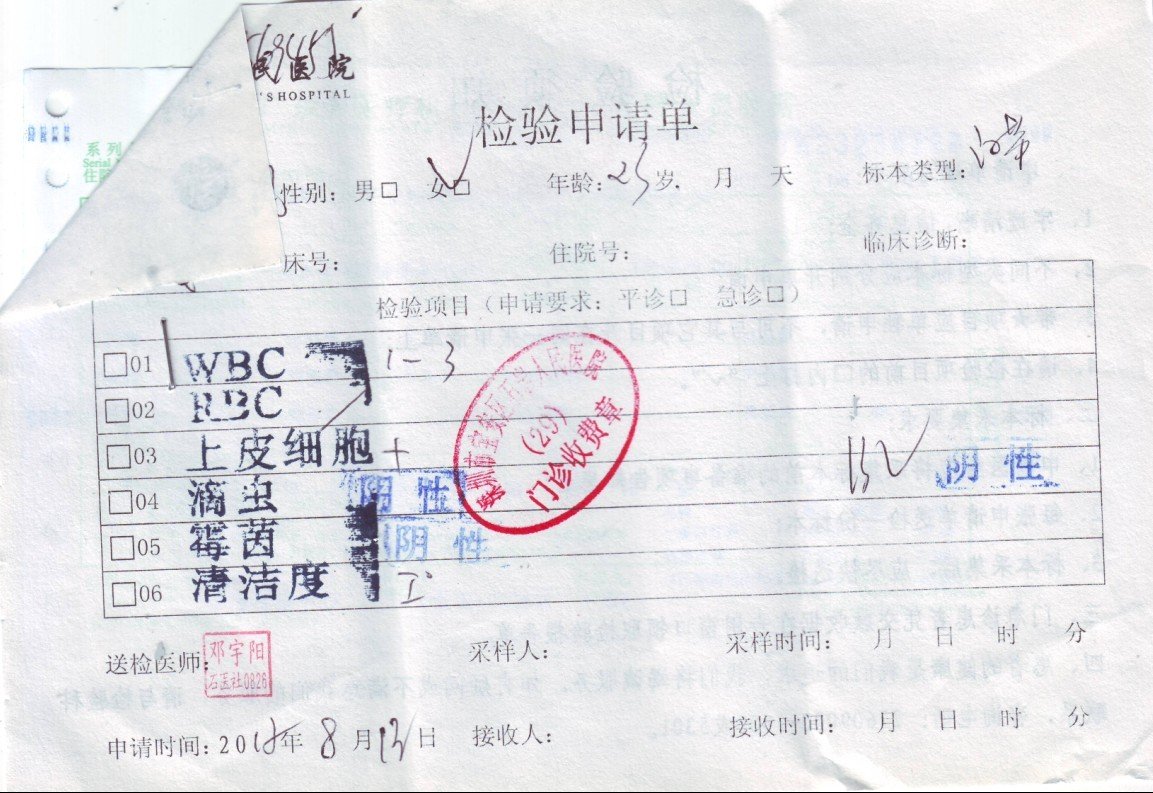 医院
'S HOSPITAL
检验申请单
系列
Serial
住院
性别：男□ 女□ 年龄：23岁 月 天 标本类型：白带
床号： 住院号： 临床诊断：
检验项目（申请要求：平诊□ 急诊□）
□01 WBC 1-3
□02 RBC
□03 上皮细胞 +
□04 滴虫 阴性
□05 霉菌 阴性
□06 清洁度 I°
BV 阴性
深圳市宝安区石岩人民医院
(29)
门诊收费章
送检医师： 采样人： 采样时间： 月 日 时 分
邓宇阳
石医社0826
申请时间：201 年 8 月 13 日 接收人： 接收时间： 月 日 时 分